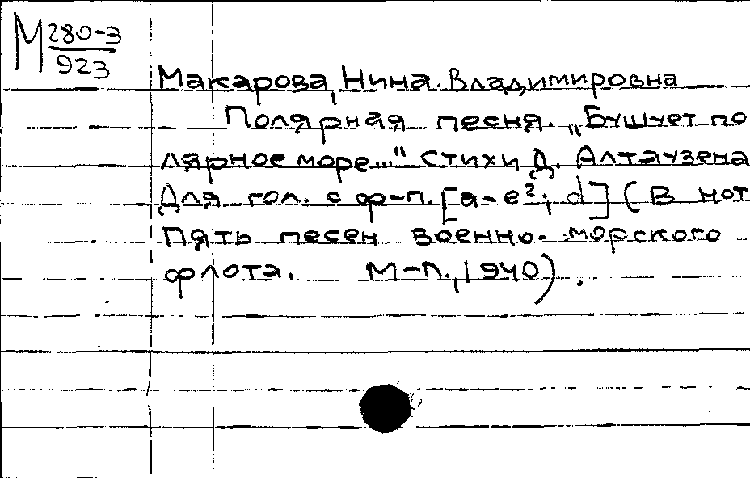 М 280-3
923
Макарова, Нина Владимировна
Полярная песня. „Бушует по
лярное море..." Стихи Д. Алтаузена
Для гол. с ф-п. [a-e²; d] (В нот
Пять песен военно-морского
флота. М-Л., 1940).